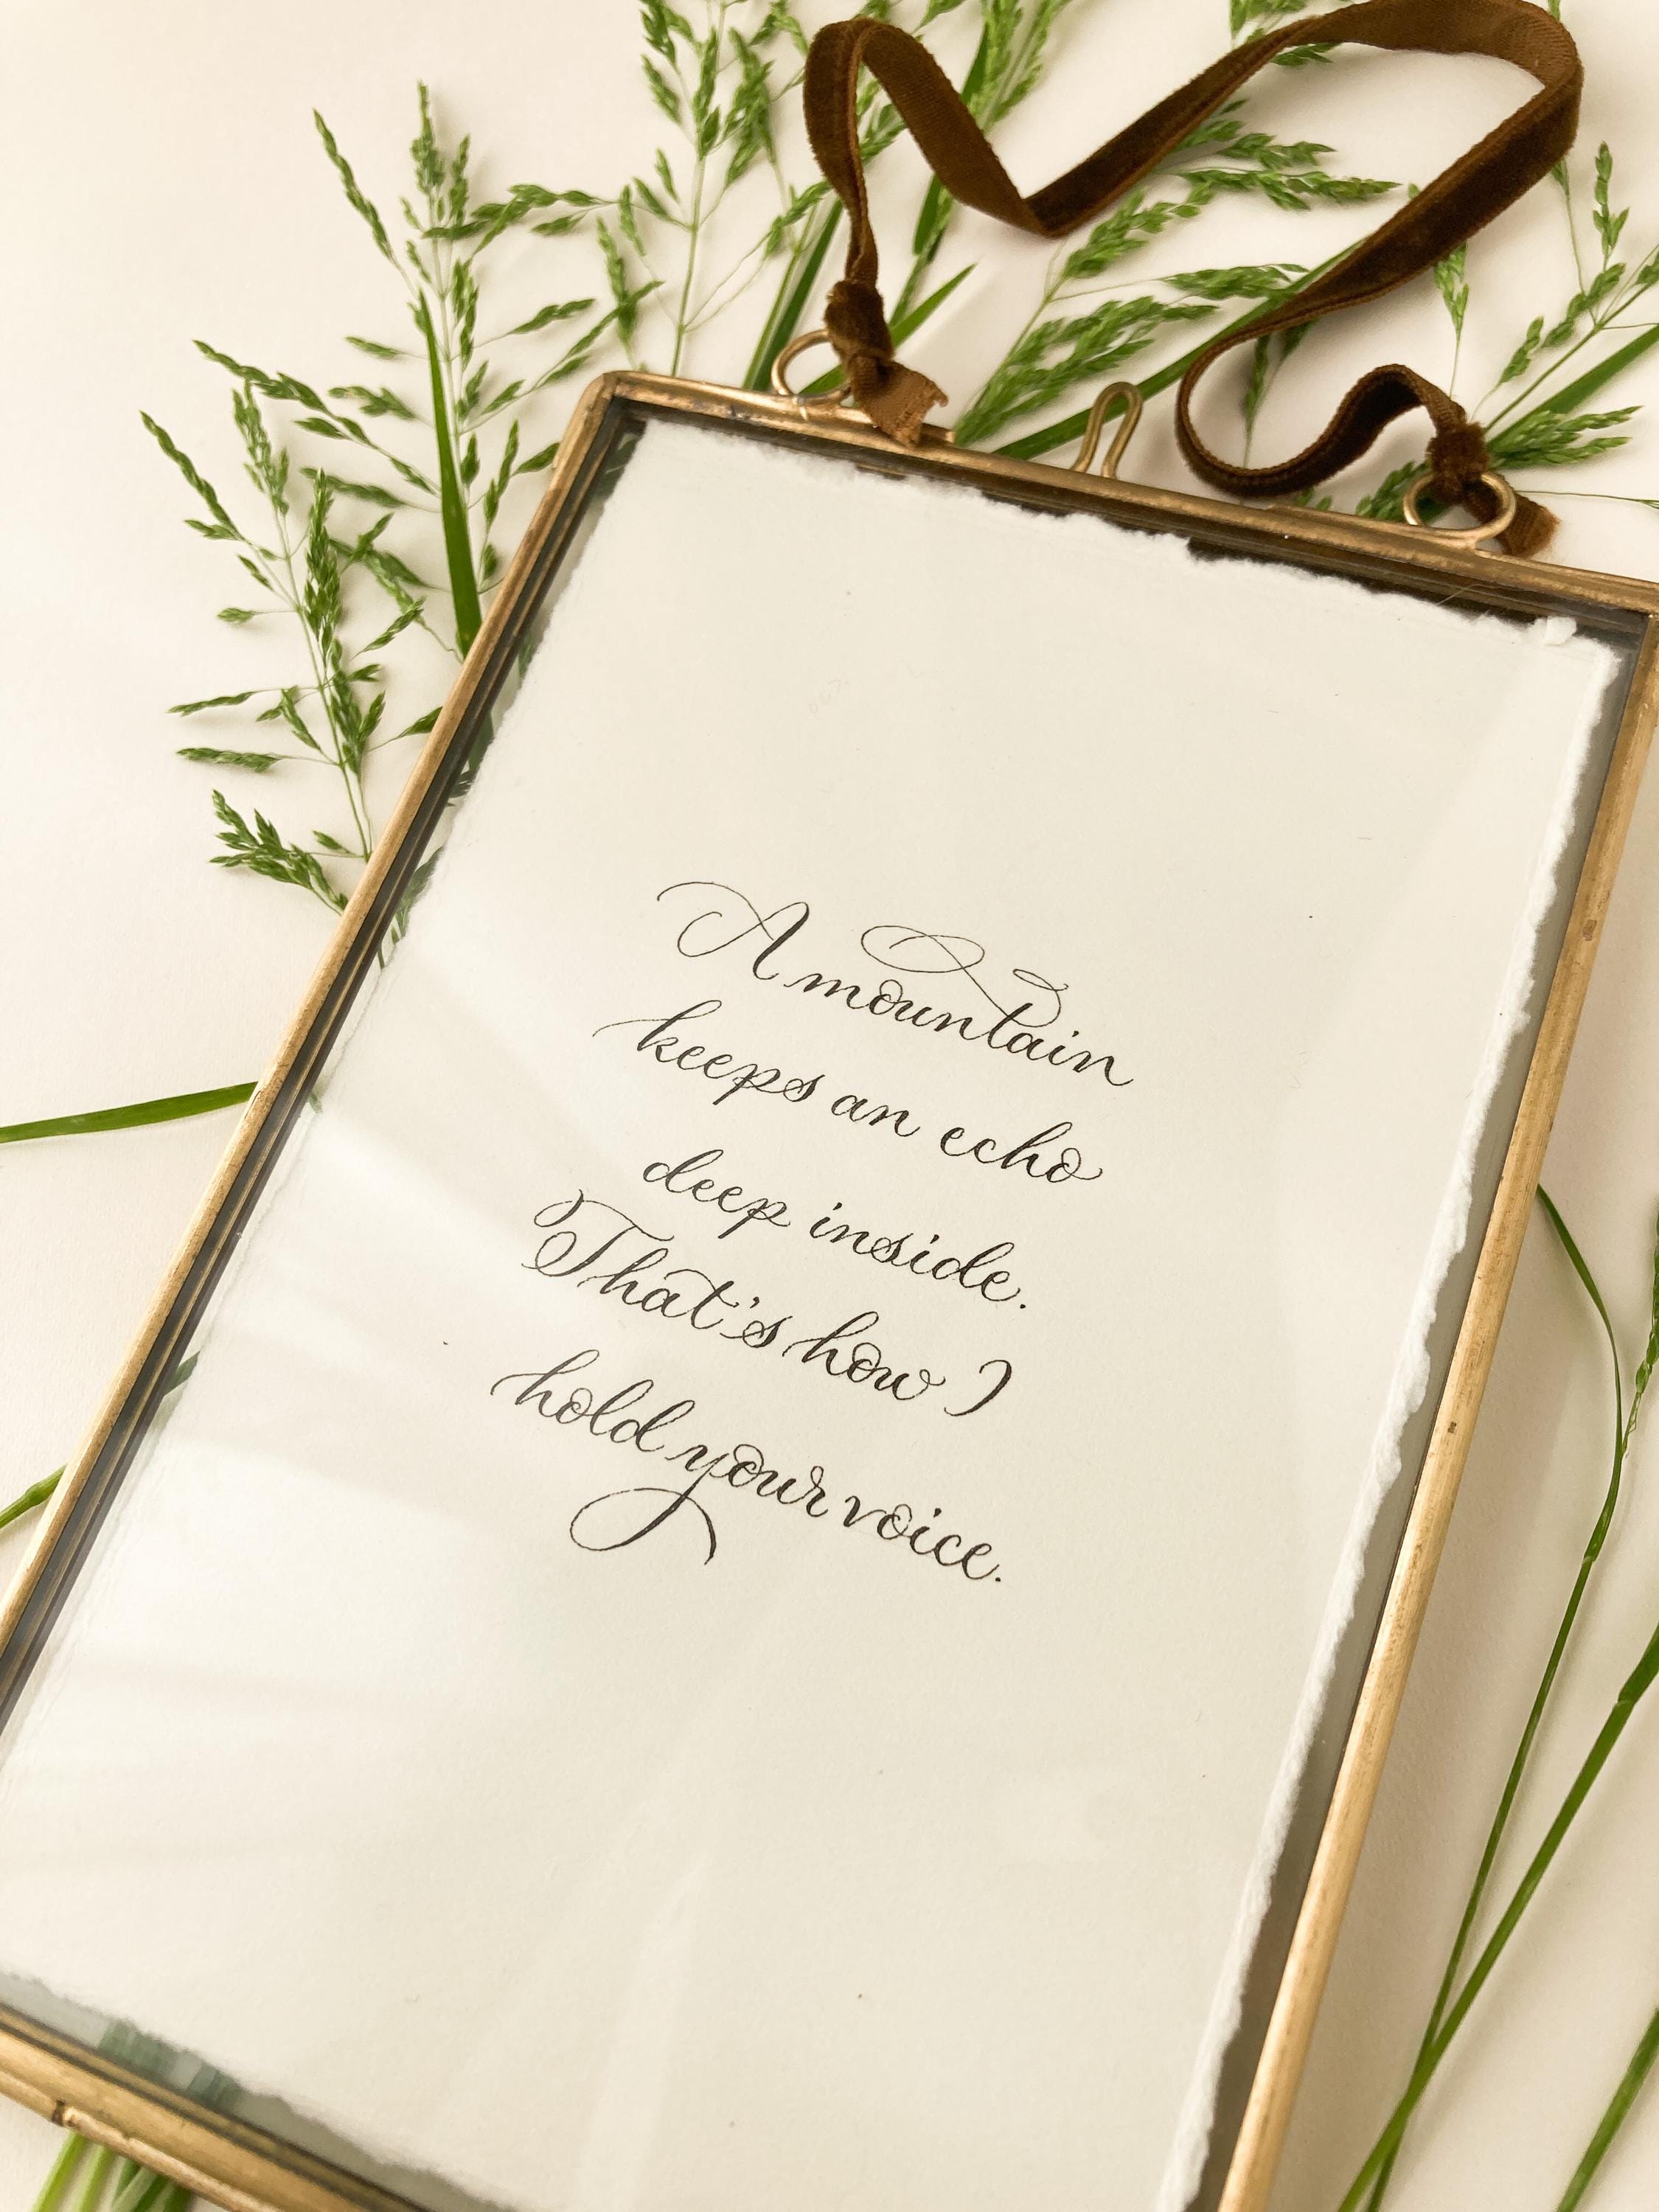 A mountain
keeps an echo
deep inside.
That's how I
hold your voice.